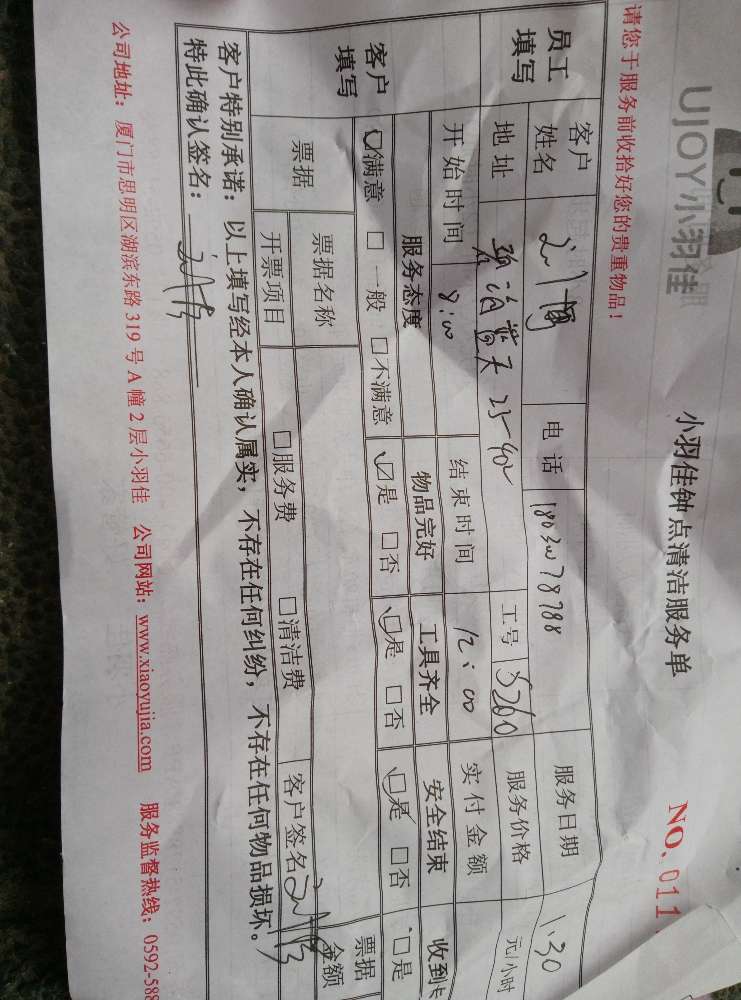 UJOY小羽佳
小羽佳钟点清洁服务单
NO. 011
请您于服务前收拾好您的贵重物品!
员工填写 客户姓名 电话 服务日期 1.30
地址 碧海蓝天 25-402 工号 5260 服务价格 元/小时
开始时间 8:00 结束时间 12:00 实付金额
客户填写 服务态度 物品完好 工具齐全 安全结束 收到卡
☑满意 □一般 □不满意 ☑是 □否 ☑是 □否 ☑是 □否 □是
票据 票据名称 □服务费 □清洁费 客户签名 票据金额
开票项目
客户特别承诺:以上填写经本人确认属实,不存在任何纠纷,不存在任何物品损坏。
特此确认签名:
公司地址:厦门市思明区湖滨东路319号A幢2层小羽佳 公司网站:www.xiaoyujia.com 服务监督热线:0592-588